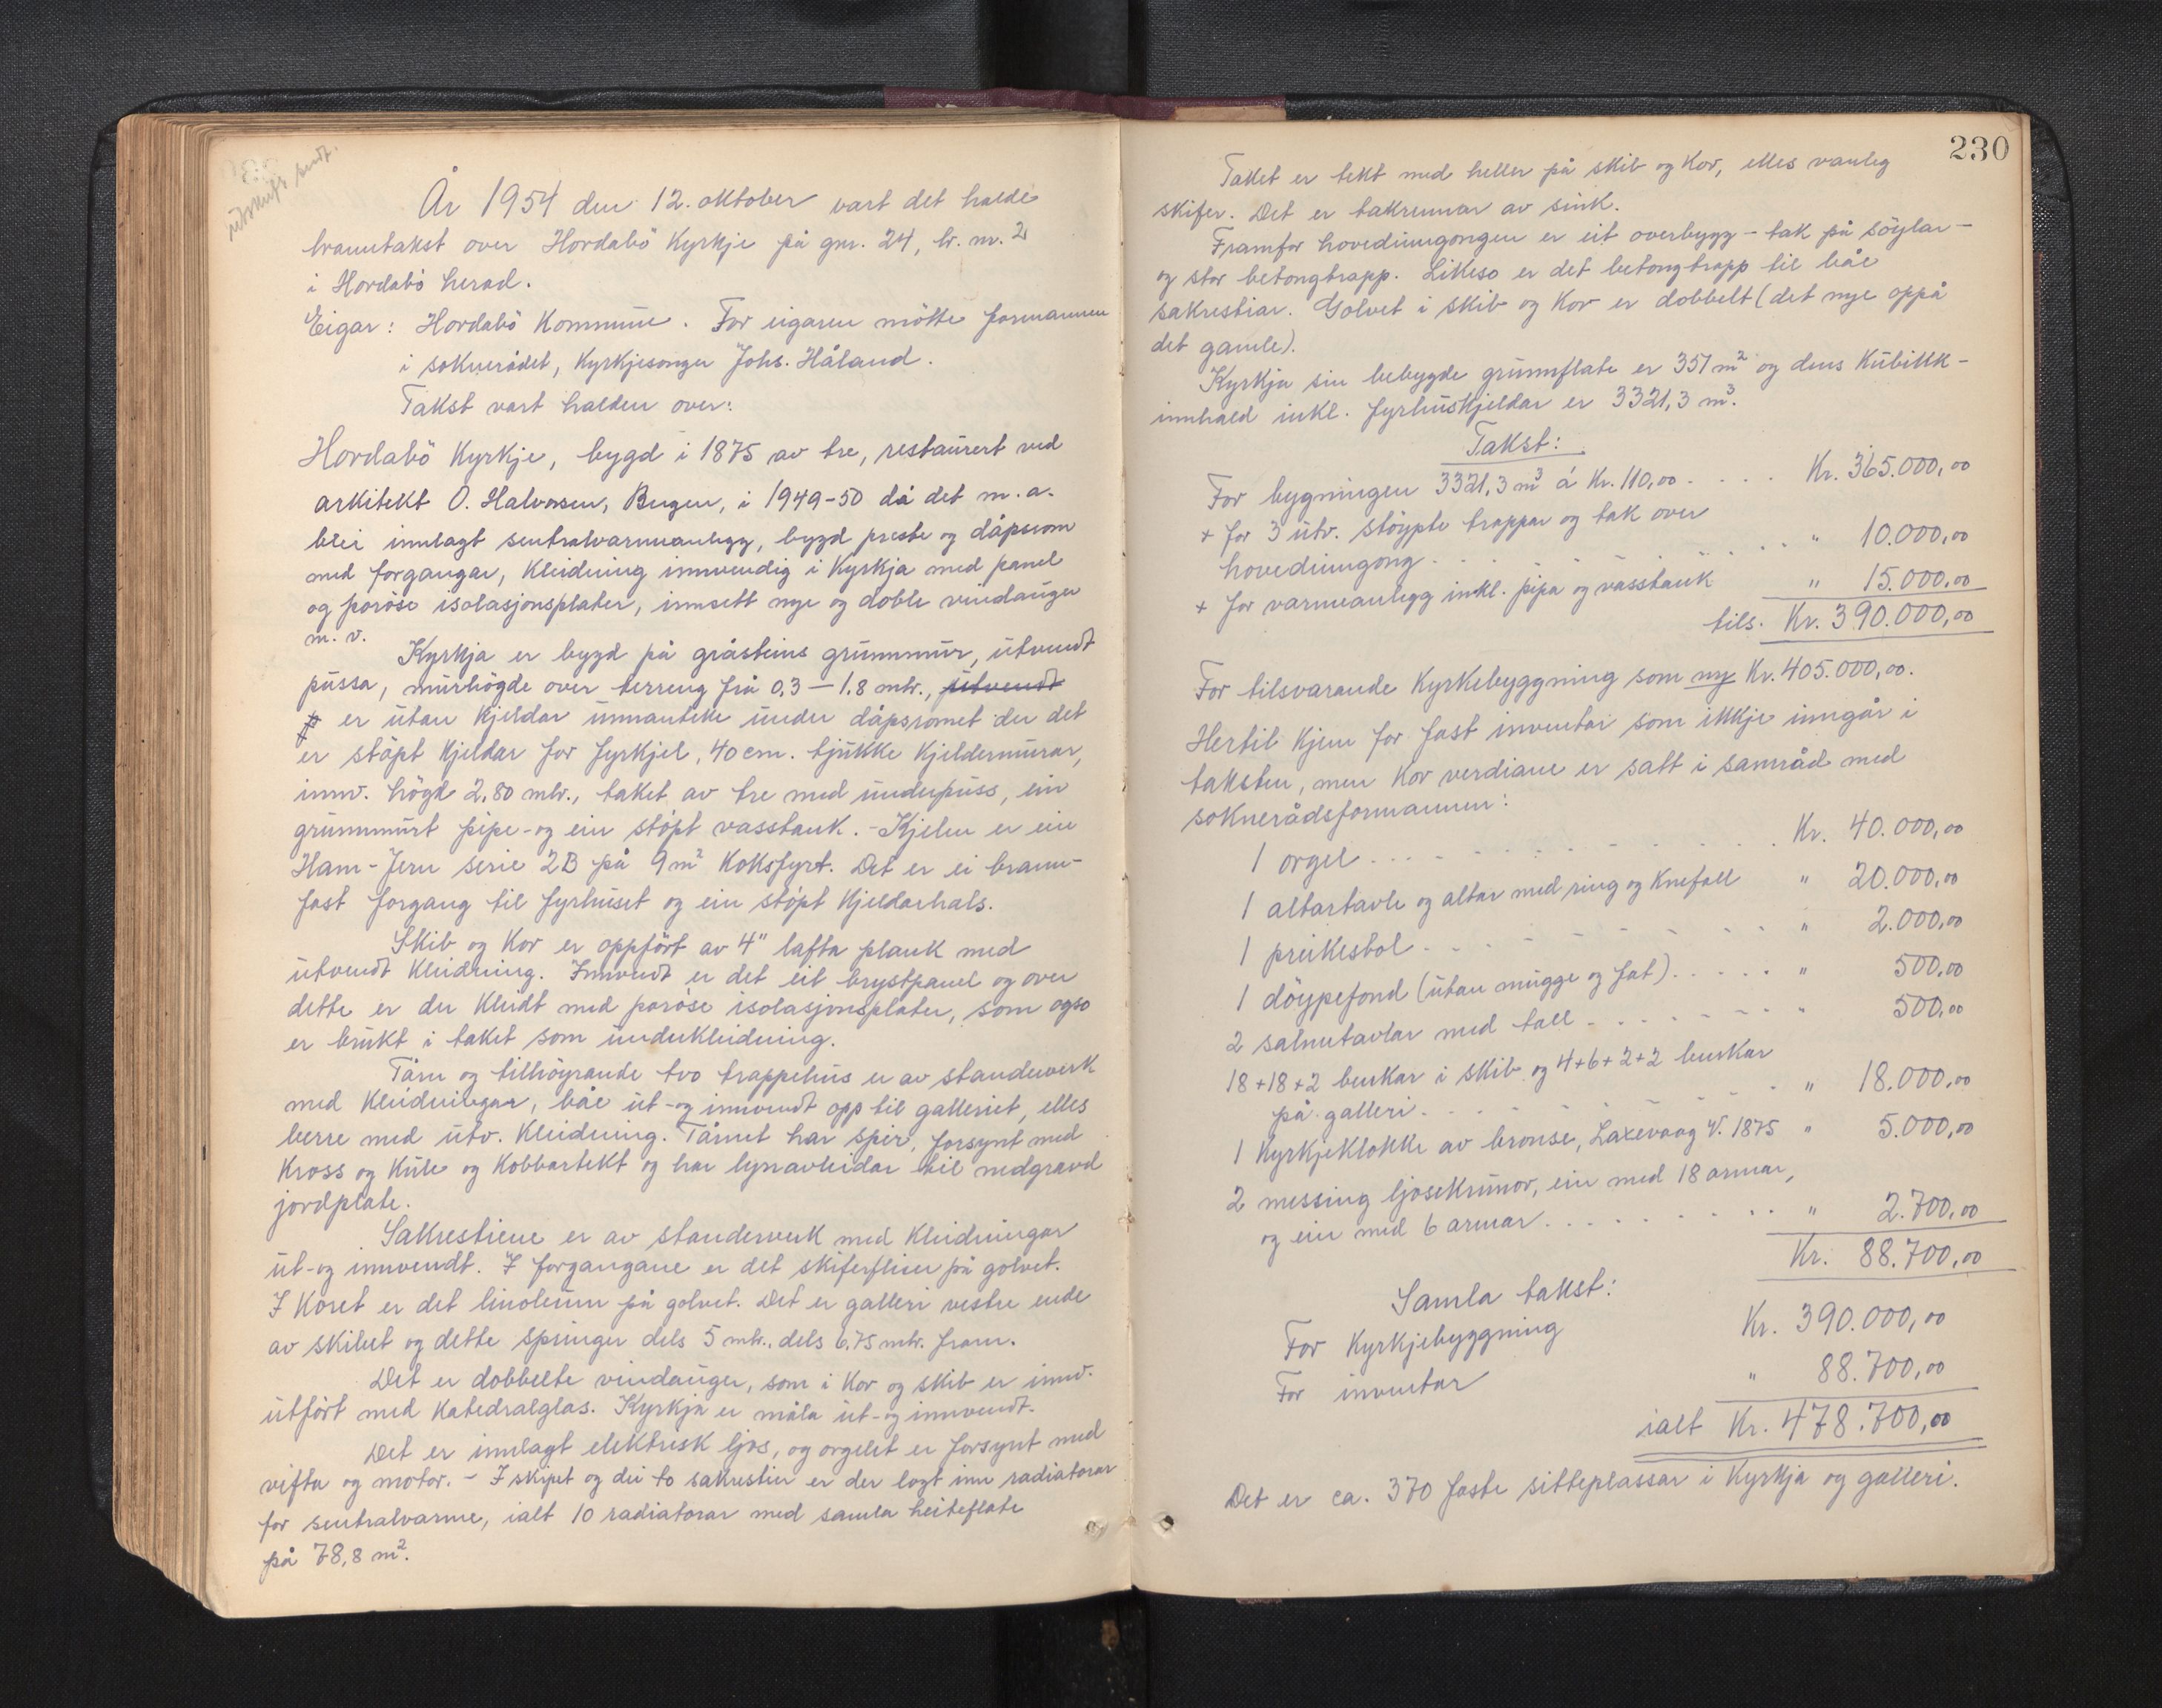 utskrift sendt.
År 1954 den 12. oktober vart det halde
branntakst over Hordabö Kyrkje på gnr. 24, br. nr. 2
i Hordabö herad.
Eigar: Hordabö Kommune. For eigaren mötte formannen
i sokneradet, Kyrkjesonger Johs. Håland.
Takst vart halden over:
Hordabö Kyrkje, bygd i 1875 av tre, restaurert ved
arkitekt O. Halvorsen, Bergen, i 1949-50 då det m.a.
blei innlagt sentralvarmeanlegg, bygd preste og dåpsrom
med forgangar, Kleidning innvendig i Kyrkja med panel
og poröse isolasjonsplater, innsett nye og doble vindauger
m.v.
Kyrkja er bygd på gråsteins grunnmur, utvendt
pussa, murhögde over terreng frå 0,3 – 1.8 mtr., utvendt
er utan Kjeldar unnanteke under dåpsromet der det
er stöpt Kjeldar for fyrkjel, 40 cm. tjukke Kjeldermurar,
innv. högde 2,80 mtr., taket av tre med underpuss, ein
grunnmurt pipe- og ein stöpt vasstank. - Kjelen er ein
Ham-Jern serie 2B på 9 m² Koksfyrt. Det er ei brann-
fast forgang til fyrhuset og ein stöpt Kjeldarhals.
Skib og Kor er oppfört av 4" lafta plank med
utvendt Kleidning. Innvendt er det eit brystpanel og over
dette er der Kleidt med poröse isolasjonsplater, som ogso
er brukt i taket som underkleidning.
Tårn og tilhöyrande tvo trappehus er av standerverk
med Kleidningar, båe ut- og innvendt opp til galleriet, elles
berre med utv. Kleidning. Tårnet har spir, forsynt med
Kross og Kule og Kobbartekt og har lynavleidar til nedgravd
jordplate.
Sakrestiene er av standerverk med Kleidningar
ut- og innvendt. I forgangane er det skiferfliser på golvet.
I Koret er det linoleum på golvet. Det er galleri vestre ende
av skibet og dette springer dels 5 mtr., dels 6.75 mtr. fram.
Det er dobbelte vindauger, som i Kor og skib er innv.
utfört med Katedralglas. Kyrkja er måla ut- og innvendt.
Det er innlagt elektrisk ljos, og orgelet er forsynt med
vifta og motor. - I skipet og dei to sakrestier er der lagt inn radiatorar
for sentralvarme, ialt 10 radiatorar med samla heiteflate
på 78,8 m².
230
Taket er tekt med heller på skib og Kor, elles vanleg
skifer. Det er takrennar av sink.
Framfor hovedinngongen er eit overbygg - tak på söylar -
og stor betongtrapp. Likeso er det betongtrapp til båe
sakrestiar. Golvet i skib og Kor er dobbelt (det nye oppå
det gamle).
Kyrkja sin bebygde grunnflate er 351 m² og dens Kubikk-
innhald inkl. fyrhuskjeldar er 3321,3 m³.
Takst:
For bygningen 3321,3 m³ á Kr. 110,00 . . . . Kr. 365.000,00
+ for 3 utv. stöypte trappar og tak over
hovedinngong . . . . . . . . " 10.000,00
+ for varmeanlegg inkl. pipa og vasstank " 15.000,00
tils. Kr. 390.000,00
For tilsvarande Kyrkebyggning som ny Kr. 405.000,00.
Hertil Kjem for fast inventar som ikkje inngår i
taksten, men kor verdiane er satt i samråd med
soknerådsformannen:
1 orgel . . . . . . . . . . Kr. 40.000,00
1 altartavle og altar med ring og Knefall " 20.000,00
1 preikestol . . . . . . . . " 2.000,00
1 döypefond (utan mugge og fat) . . . . . " 500,00
2 salmetavlar med tall . . . . . . . " 500,00
18+18+2 benkar i skib og 4+6+2+2 benkar
på galleri . . . . . . . . " 18.000,00
1 Kyrkjeklokke av bronse, Laxevaag V. 1875 " 5.000,00
2 messing ljosekrunor, ein med 18 armar,
og ein med 6 armar . . . . . . . . " 2.700,00
Kr. 88.700,00
Samla takst:
For Kyrkjebyggning Kr. 390.000,00
For inventar " 88.700,00
ialt Kr. 478.700,00
Det er ca. 370 faste sitteplassar i Kyrkja og galleri.